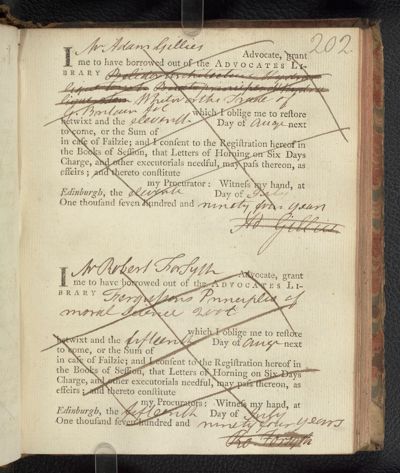 202.
I Mr Adam Gillies Advocate, grant
me to have borrowed out of the ADVOCATES LI-
BRARY
Whitworths Trade of
G. Britain which I oblige me to restore
betwixt and the eleventh Day of Augt next
to come, or the Sum of
in case of Failzie; and I consent to the Registration hereof in
the Books of Session, that Letters of Horning on Six Days
Charge, and other executorials needful, may pass thereon, as
effeirs; and thereto constitute
my Procurator: Witness my hand, at
Edinburgh, the eleventh Day of July
One thousand seven hundred and ninety four years
Ad Gillies
I Mr Robert Forsyth Advocate, grant
me to have borrowed out of the ADVOCATES LI-
BRARY Fergussons Principles of
moral Science 2 vol
which I oblige me to restore
betwixt and the fifteenth Day of Augt next
to come, or the Sum of
in case of Failzie; and I consent to the Registration hereof in
the Books of Session, that Letters of Horning on Six Days
Charge, and other executorials needful, may pass thereon, as
effeirs; and thereto constitute
my Procurators: Witness my hand, at
Edinburgh, the fifteenth Day of July
One thousand seven hundred and ninety four years
Ro. Forsyth